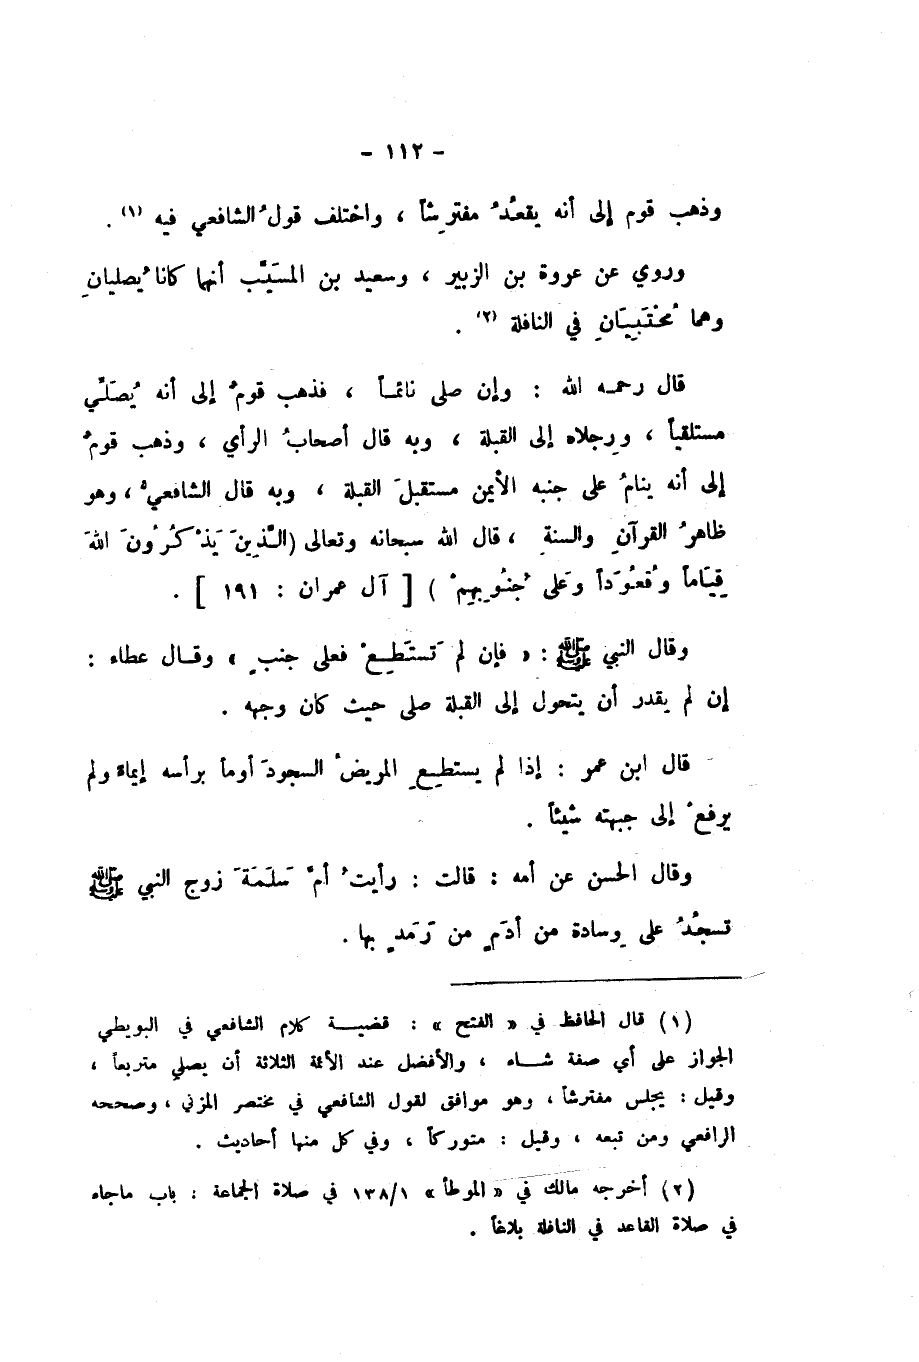 - ١١٢ -
وذهب قوم إلى أنه يقعُدُ مفترِشاً ، واختلف قولُ الشافعي فيه (١) .
وروي عن عروة بن الزبير ، وسعيد بن المسَيَّب أنهما كانا يُصليانِ
وهما مُحْتَبِيَانِ في النافلة (٢) .
قال رحمه الله : وإن صلى نائماً ، فذهب قومٌ إلى أنه يُصَلِّي
مستلقياً ، ورِجلاه إلى القبلة ، وبه قال أصحابُ الرأي ، وذهب قومٌ
إلى أنه ينامُ على جنبه الأيمن مستقبلَ القبلة ، وبه قال الشافعيُّ ، وهو
ظاهرُ القرآنِ والسنةِ ، قال الله سبحانه وتعالى (الَّذِينَ يَذْكُرُونَ اللهَ
قِيَاماً وقُعُوداً وَعَلى جُنُوبِهِمْ ) [ آل عمران : ١٩١ ] .
وقال النبي ﷺ : « فإن لم تَستَطِعْ فعلى جنبٍ » وقال عطاء :
إن لم يقدر أن يتحول إلى القبلة صلى حيث كان وجهه .
قال ابن عمر : إذا لم يستطِعِ المريضُ السجودَ أومأ برأسه إيماءً ولم
يرفعْ إلى جبهته شيئاً .
وقال الحسن عن أمه : قالت : رأيتُ أمَّ سَلَمَةَ زوج النبي ﷺ
تسجُدُ على وِسادة من أدَمٍ من رَمَدٍ بها .
(١) قال الحافظ في « الفتح » : قضية كلام الشافعي في البويطي
الجواز على أي صفة شاء ، والأفضل عند الأئمة الثلاثة أن يصلي متربعاً ،
وقيل : يجلس مفترشاً ، وهو موافق لقول الشافعي في مختصر المزني ، وصححه
الرافعي ومن تبعه ، وقيل : متوركاً ، وفي كل منها أحاديث .
(٢) أخرجه مالك في « الموطأ » ١٣٨/١ في صلاة الجماعة : باب ماجاء
في صلاة القاعد في النافلة بلاغاً .